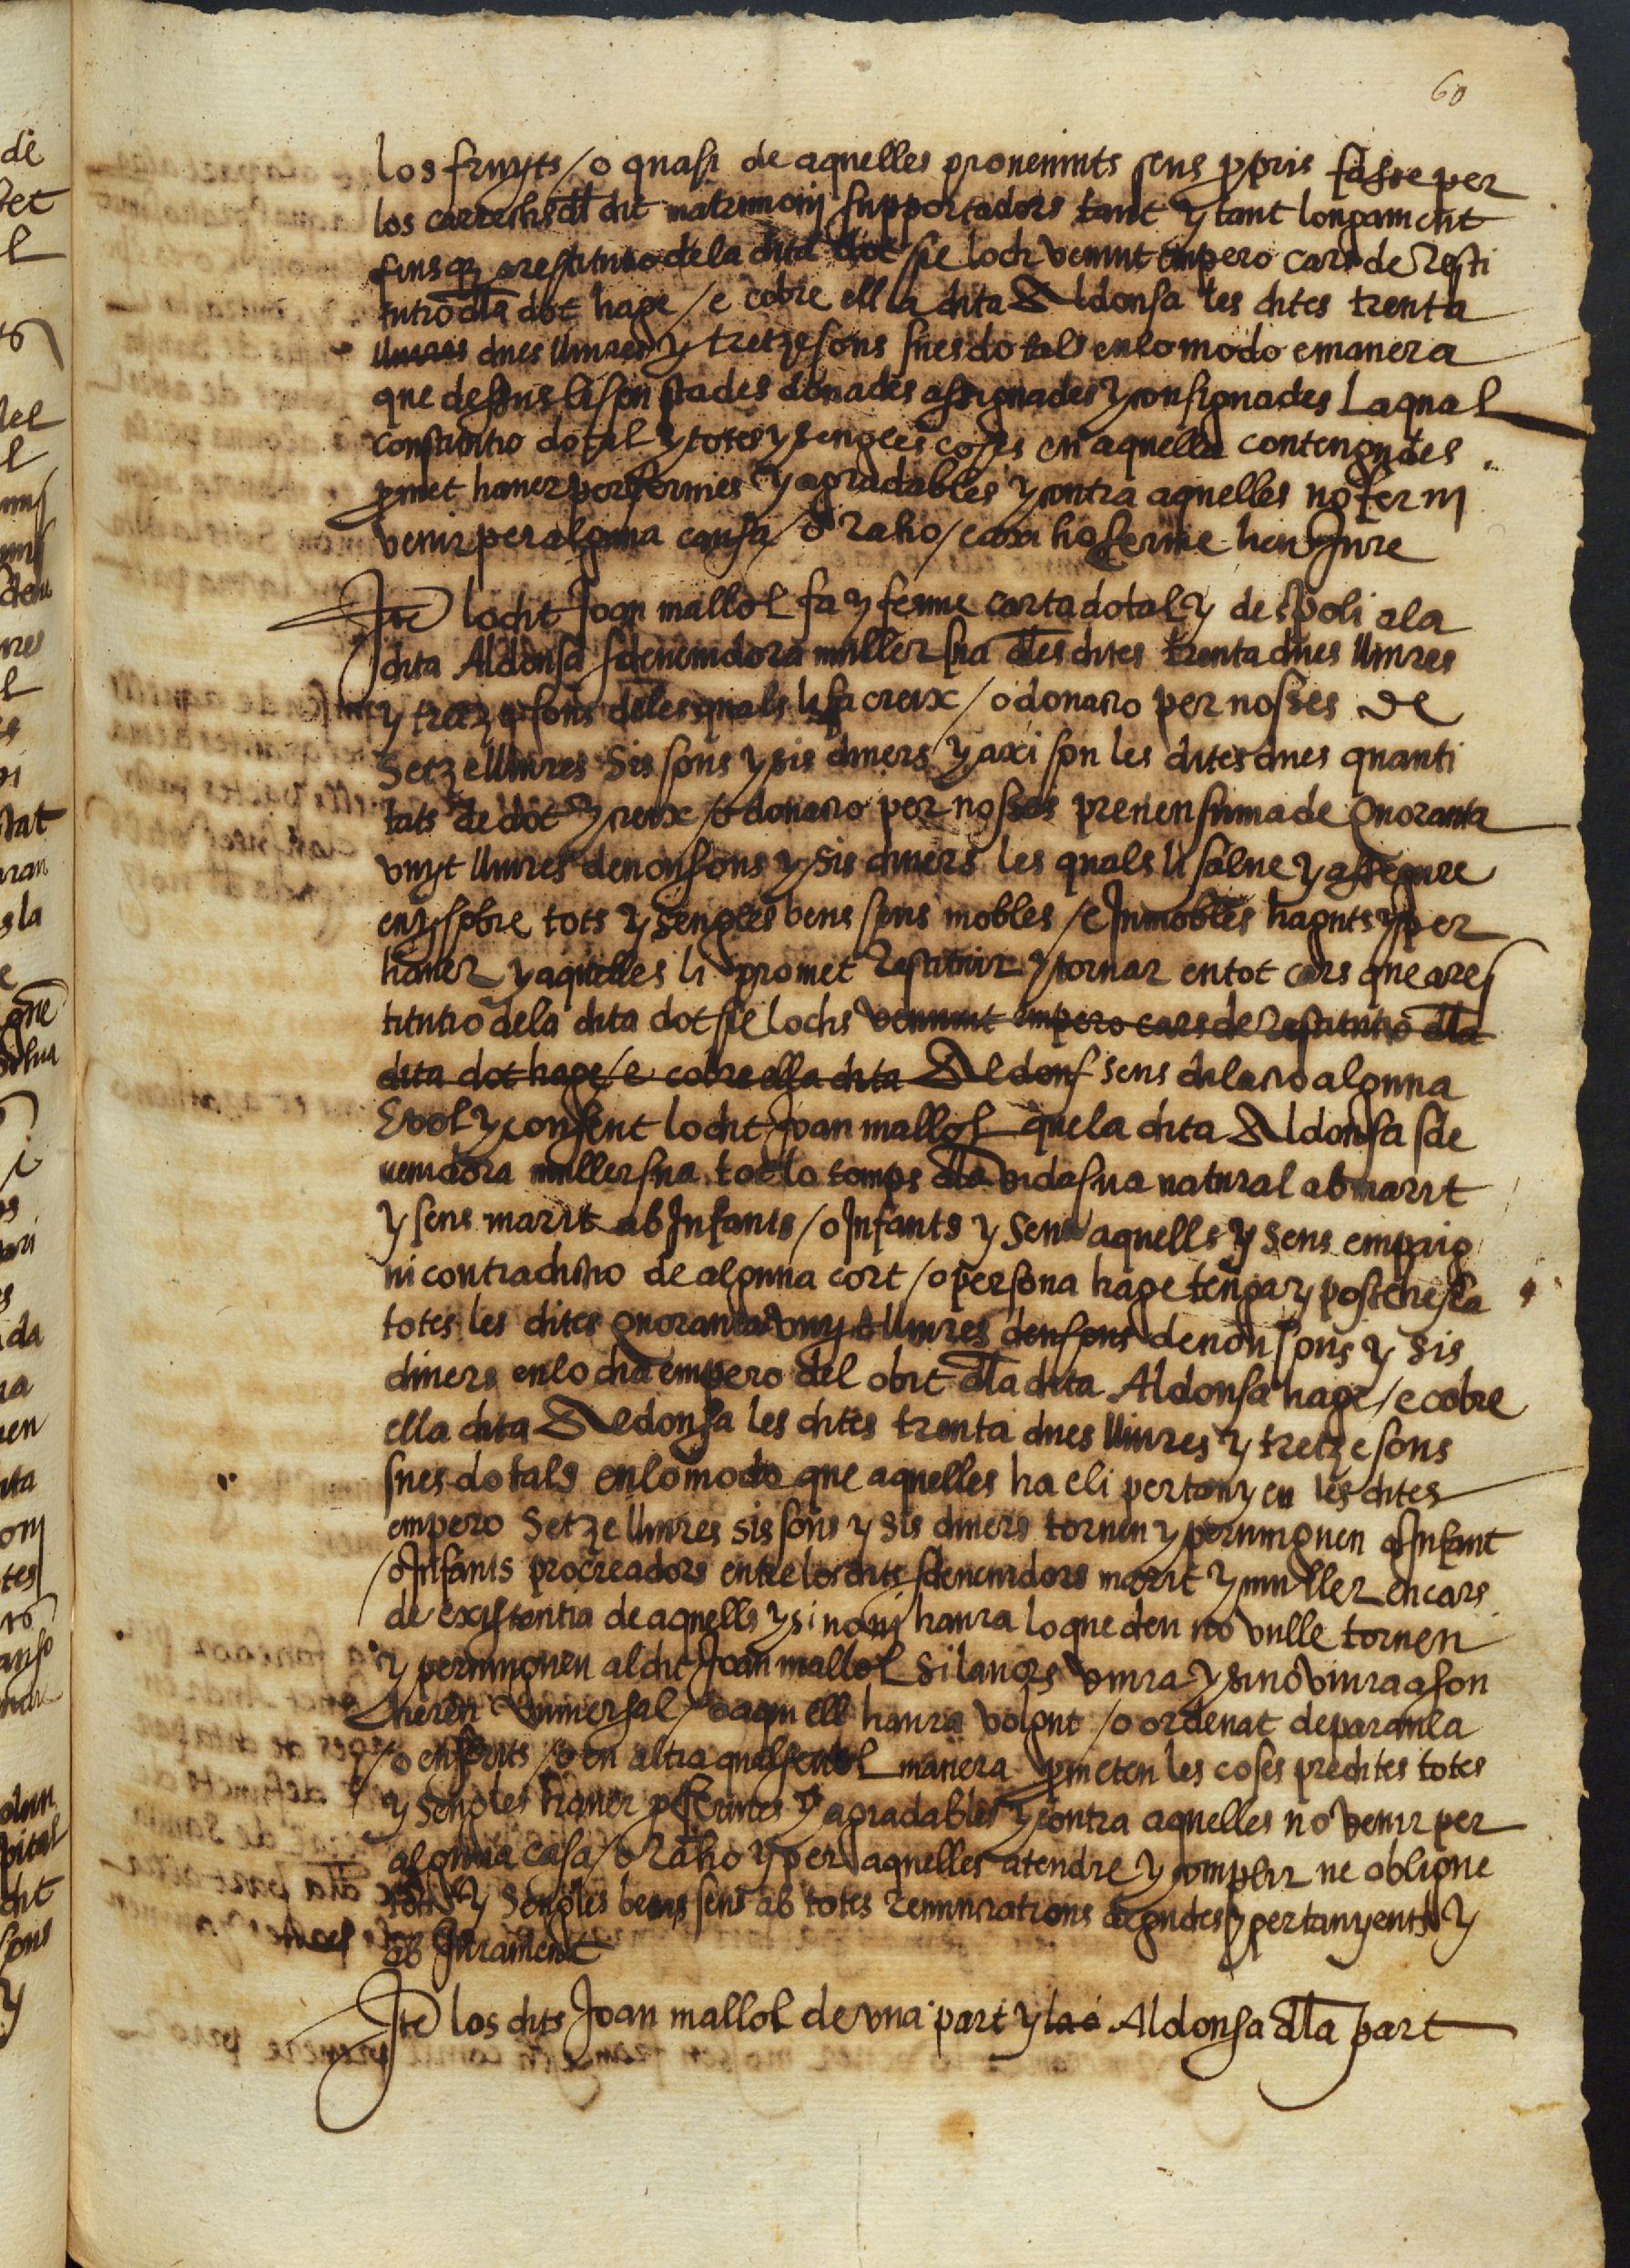 60
los fruyts / o quasi de aquelles provenints sens ppris fasse per
los carrechs dl dit matrimonj supportadors tant y tant longament
fins q a restitutio de la dita dot sie loch venint empero cars de Resti
tutio dla dot hage / e cobre ella dita Aldonsa les dites trenta
lliures dues lliures y tretze sous sues dotals en lo modo e manera
que dessus li son stades donades assignades y consignades La qual
constitutio dotal y totes y sengles coses en aquella contengudes
pmet haver per fermes y agradables y contra aquelles no fer nj
venir per alguna causa / o Raho / e axi ho ferme heu Jure
Ite lo dit Joan mallol fa y ferme carta dotal y de spoli a la
dita Aldonsa sdevenidora muller sua dles dites trenta dues lliures
y tretze sous de les quals li fa creix / o donatio per nosses de
Setze lliures Sis sous y sis diners y axi son les dites dues quanti
tats de dot y creix / o donatio per nosses prenen suma de Quoranta
vuyt lliures denou sous y sis diners les quals li salve y assegure
en y sobre tots y sengles bens seus mobles / e Inmobles haguts y per
haver y aquelles li promet Restituir y tornar en tot cars que a res
titutio de la dita dot sie lochs venint empero cars de Restitutio dla
dita dot hage / e cobre ella dita Aldons sens dilatio alguna
E vol y consent lo dit Joan mallol que la dita Aldonsa sde
venidora muller sua tot lo temps dla vida sua natural ab marit
y sens marit ab Infants / o Infants y Sens aquells y Sens empaig
ni contradictio de alguna cort / o persona hage tenga y possehesca
totes les dites quoranta vuyt lliures den sous denou sous y sis
diners en lo dia empero del obit dla dita Aldonsa hage / e cobre
ella dita Aldonsa les dites trenta dues lliures y tretze sous
sues dotals en lo modo que aquelles ha e li pertanyen les dites
empero Setze lliures sis sous y sis diners tornen y pervinguen a Infant
/ o Infants procreadors entre los dits sdevenidors marit y muller en cars
de existentia de aquells y si no nj haura lo que deu no vulle tornen
y pervinguen al dit Joan mallol Si lavors viura y si no viura a son
hereu Universal / o a qu ell haura volgut / o ordenat de paraula
/ o en scrits / o en altra qualsevol manera pmeten les coses predites totes
y Sengles haver p fermes y agradables y contra aquelles no venir per
alguna casa / o Raho y per aquelles atendre y complir ne obligue
tots y Sengles bens seus ab totes renuntiations degudes y pertanyents y
ab Jurament
Ite los dits Joan mallol de una part y la Aldonsa dla part